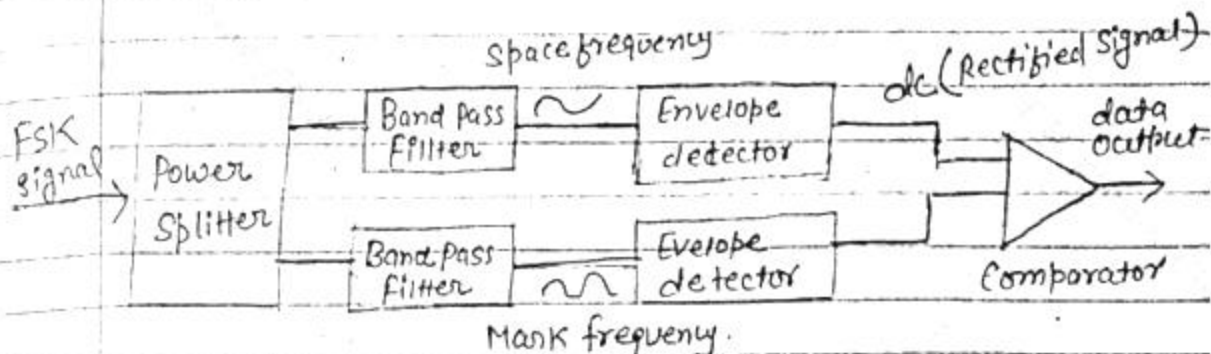 Space frequency
dc (Rectified Signal)
FSK
signal
Power
Splitter
Band Pass
Fillter
Envelope
detector
data
output
Band Pass
Filter
Evelope
detector
Comparator
Mark frequency.